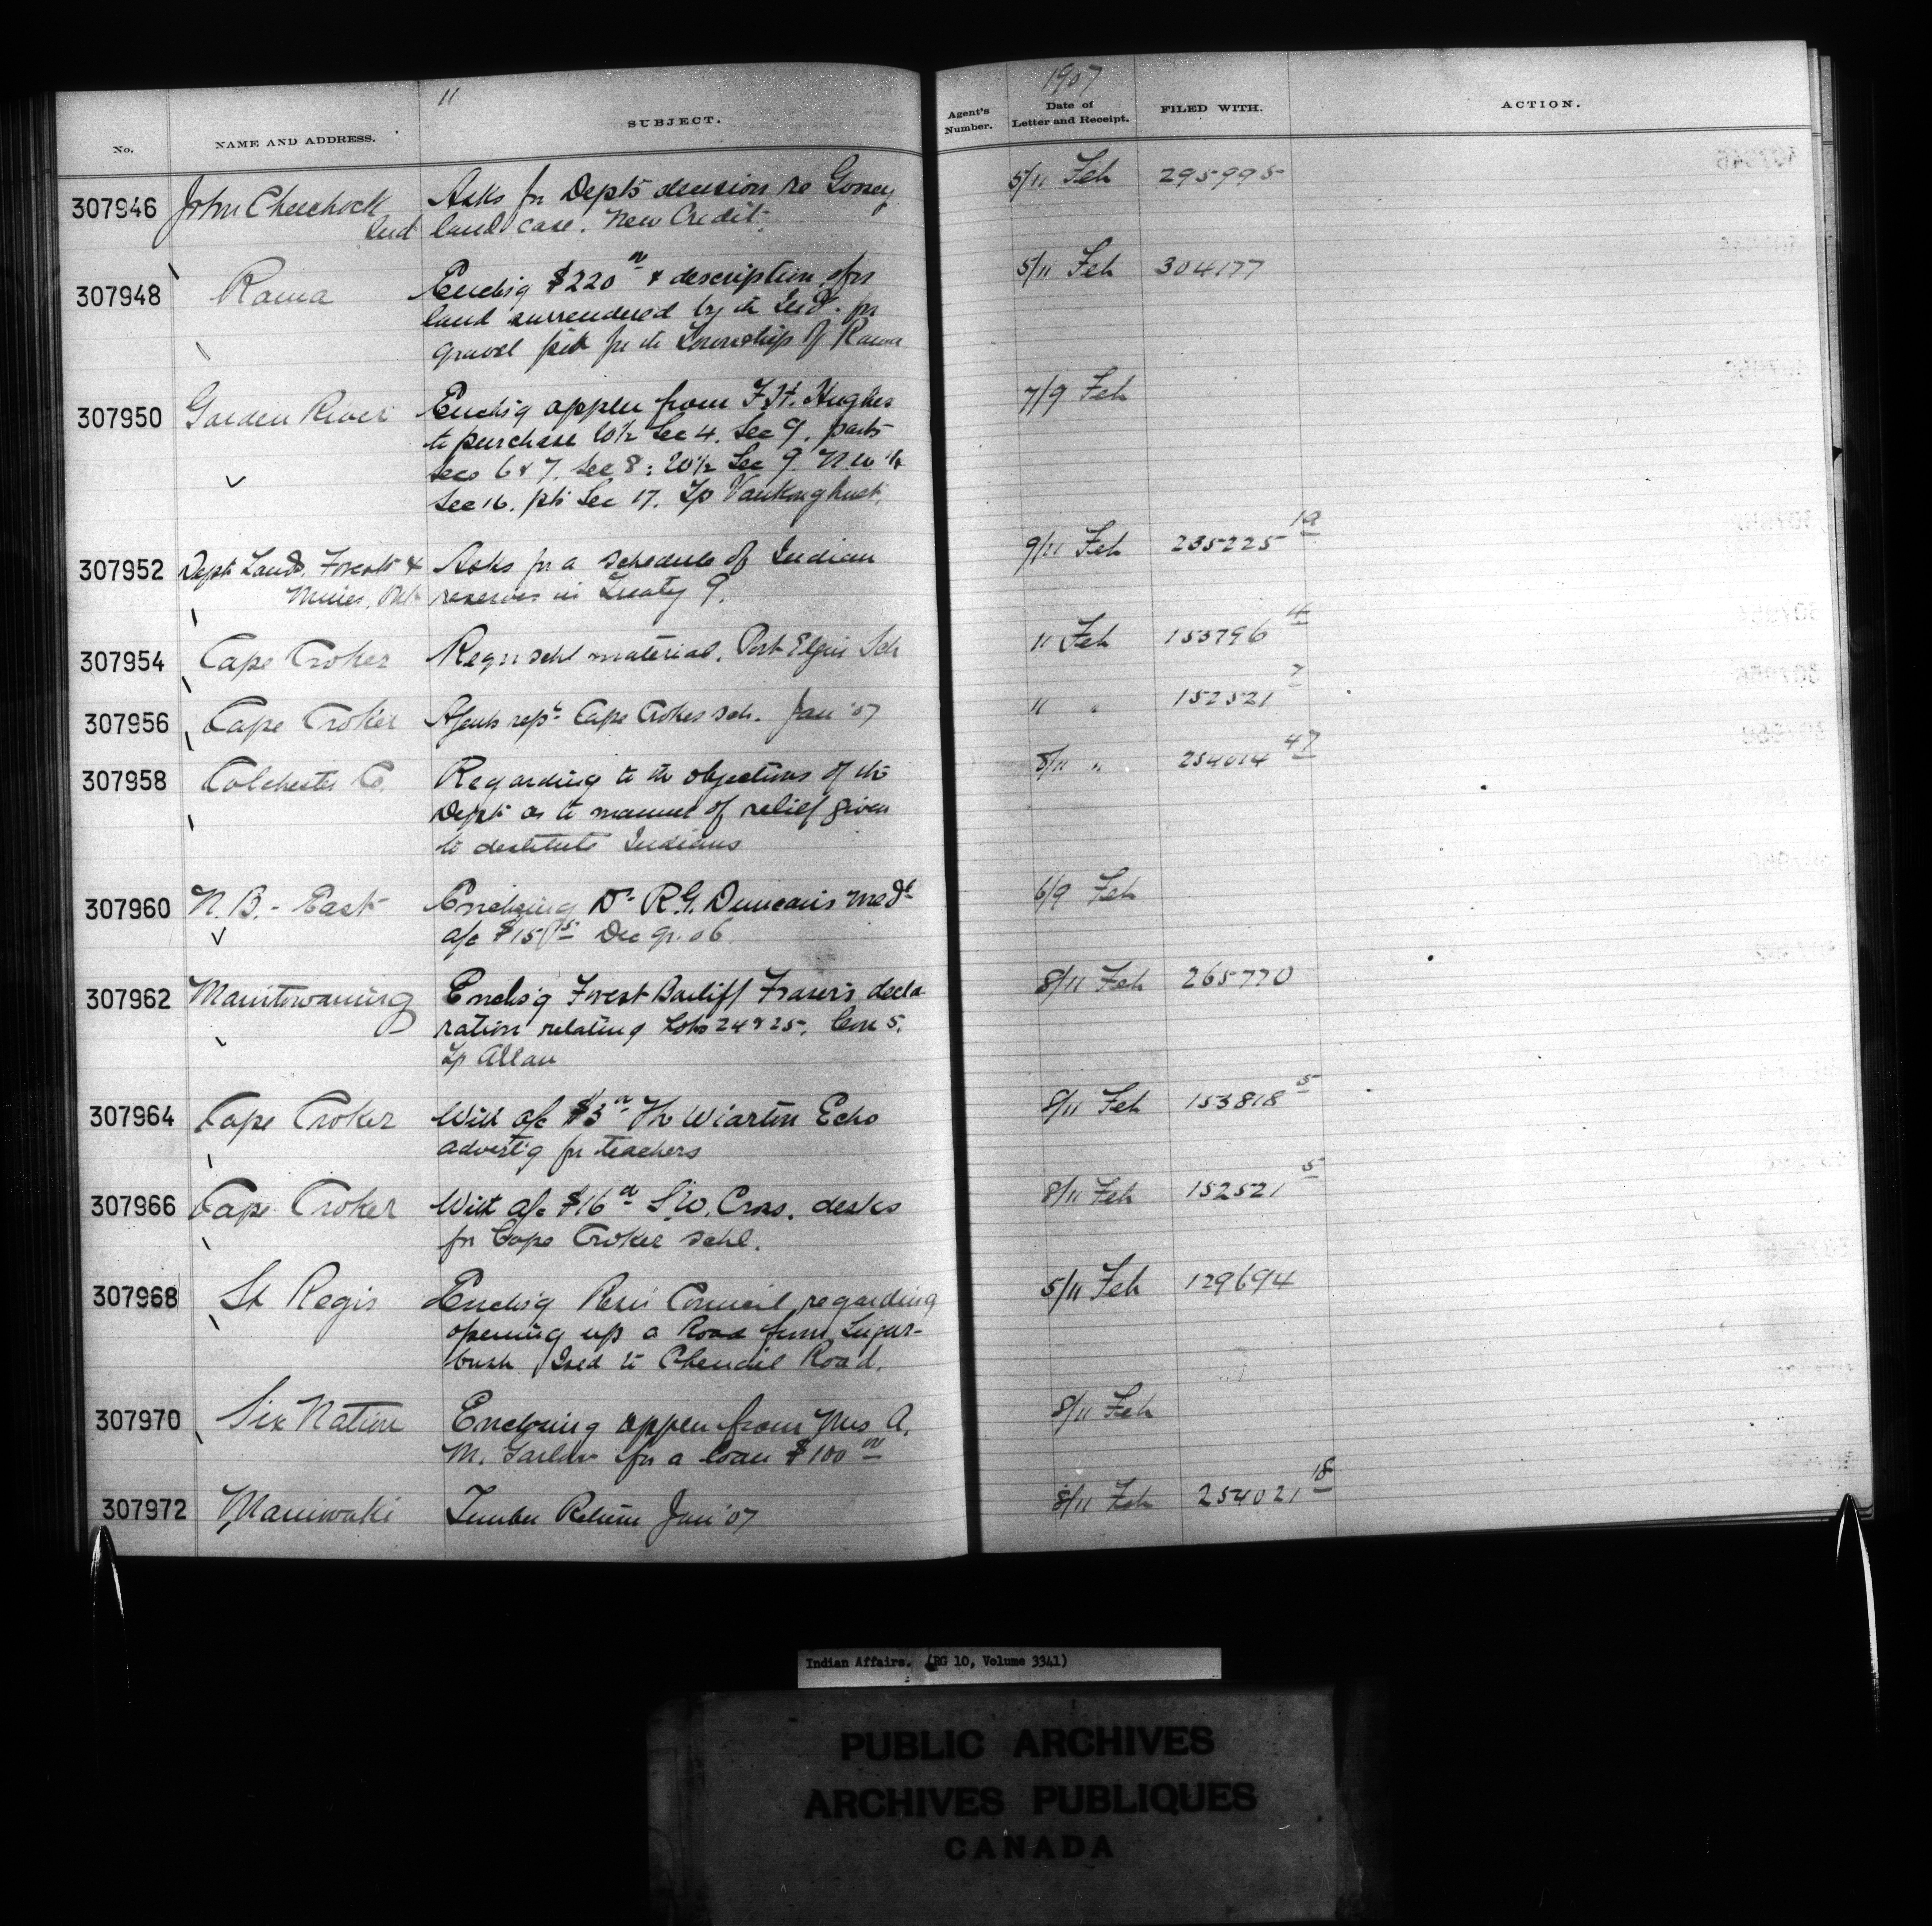 11
1907
No.
NAME AND ADDRESS.
SUBJECT.
Agent's Number.
Date of Letter and Receipt.
FILED WITH.
ACTION.
307946 John Chechock Asks for Depts decision re 5/11 Feb 295995
Ind land case. New Credit.
307948 Rama Enclsg $220 00 & description of land surrendered by the Inds. for 5/11 Feb 304177
gravel pit for the Township of Rama
307950 Garden River Enclsg applen from F.H. Hughes 7/9 Feb
to purchase W½ Sec 4. Sec 9. parts
Secs 6 & 7. Sec 8: W½ Sec 9 N.W. ¼
Sec 16. pts Sec 17. Tp Vankoughnet.
307952 Dept Lands, Forests & Asks for a schedule of Indian 9/11 Feb 235225 19
Mines, Ont reserves in Treaty 9.
307954 Cape Croker Reqn schl material. Port Elgin Sch 11 Feb 153796 4
307956 Cape Croker Agents rept Cape Croker sch. Jan '07 " " 152521 7
307958 Colchester Co. Regarding to the objections of the 8/11 " 254014 47
Dept as to manner of relief given
to destitute Indians
307960 N.B. - East Enclosing Dr R.G. Duncan's Medl 6/9 Feb
a/c $15 75 Dec qr. 06
307962 Manitowaning Enclsg Forest Bailiff Fraser's decla 8/11 Feb 265770
ration relating Lots 24 & 25. Con 5.
Tp Allan
307964 Cape Croker With a/c $3 00 The Wiarton Echo 8/11 Feb 153818 5
advertsg for teachers
307966 Cape Croker With a/c $16 00 S.W. Cross. desks 8/11 Feb 152521 5
for Cape Croker schl.
307968 St Regis Enclsg Resn Council regarding 5/11 Feb 129694
opening up a Road from Sugar-
bush Road to Road.
307970 Six Nation Enclosing applen from Mrs A. 8/11 Feb
M. Garlow for a loan $100 00
307972 Maniwaki Timber Return Jan '07 8/11 Feb 254021 18
Indian Affairs. (RG 10, Volume 3341)
PUBLIC ARCHIVES
ARCHIVES PUBLIQUES
CANADA